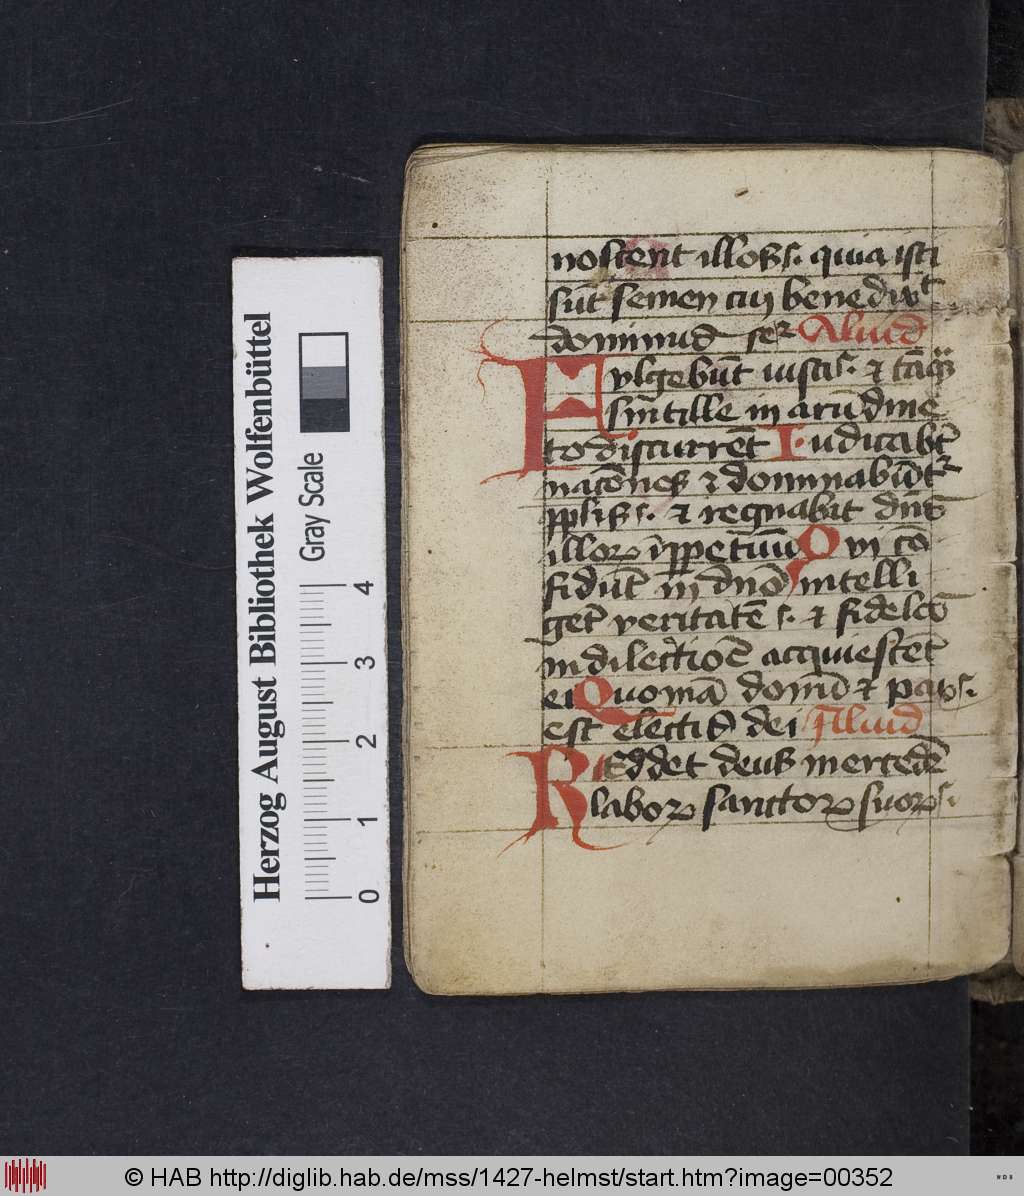 noscent illos. quia isti
sūt semen cui benedixt
dominus sеr Aliud
Fvlgebūt iusti. et tāqz
sintille in arūdine
to discurrēt Iudicabt
nacōnes et dominabūtr
ppłis. et regnabit dn̄s
illoꝝ ippetuū Qvi cō
fidūt in dn̄o intelli
get veritatē. et fideles
in dilectioē acquiescēt
ei Quoniā donū et pax.
est electis dei Aliud
REddet deus mercedē
laboꝝ sanctoꝝ suoꝝ.
Herzog August Bibliothek Wolfenbüttel
Gray Scale
0 1 2 3 4
© HAB http://diglib.hab.de/mss/1427-helmst/start.htm?image=00352